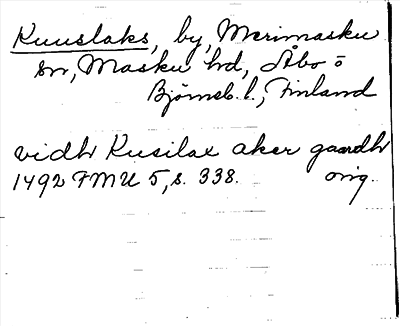 Kuuslaks, by, Merimasku
sn, Masku hd, Åbo o
Björneb. l., Finland
vidh Kusilax aker gaardh
1492 FMU 5, s. 338. orig.